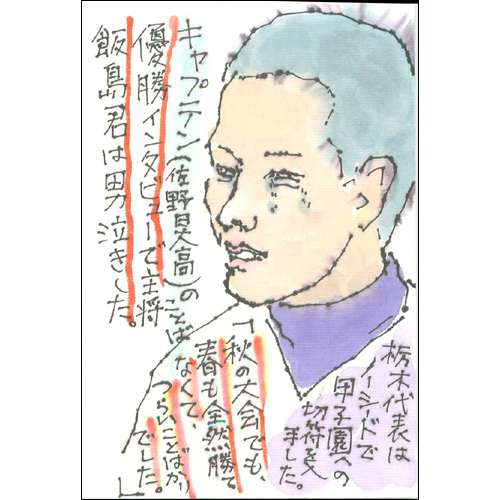 栃木代表は
ノーシードで
甲子園への
切符を入
手した。
キャプテン(佐野日大高)のことば
優勝インタビューで主将
飯島君は男泣きした。
「秋の大会でも、
春も全然勝て
なくて、
つらいことばかり
でした。」